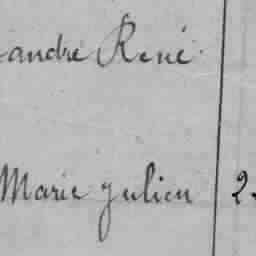 andre René
Marie Julien 2